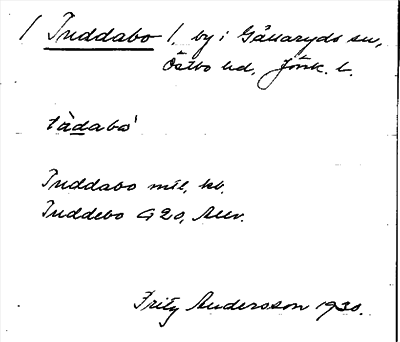 / Tuddabo /, by i Gällaryds sn,
Östbo hd, Jönk. l.
tàdabo'
Tuddabo mil, kb.
Tuddebo G20, Auv.
Fritz Andersson 1930.